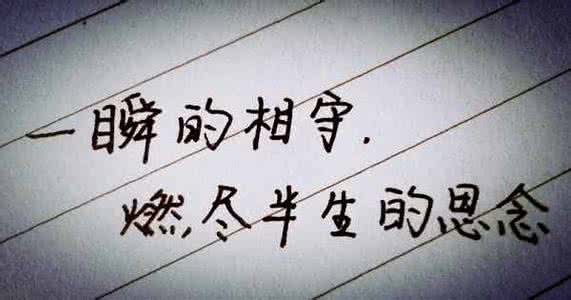 一瞬的相守.
燃尽半生的思念